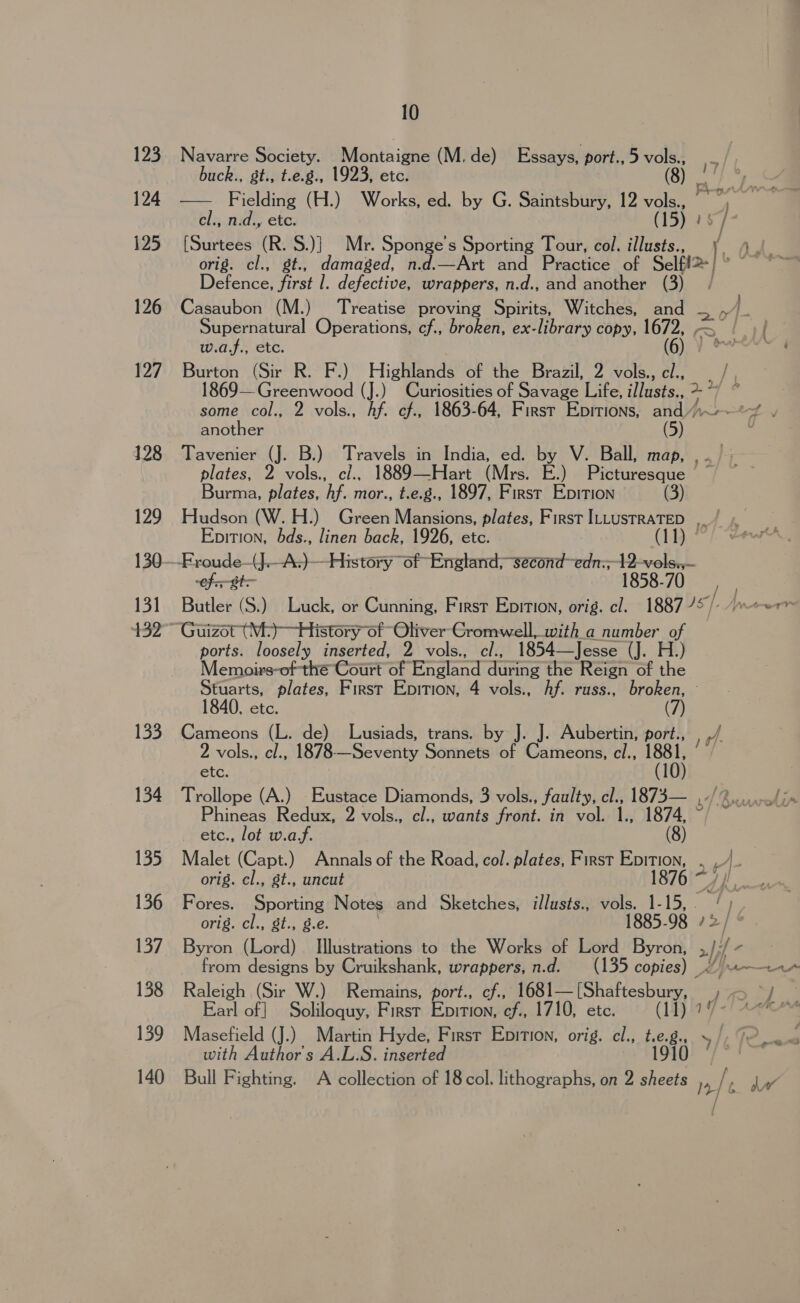 10
123 Navarre Society. Montaigne (M. de) Essays, port., 5 vols.,
buck., gt., t.e.g., 1923, etc. (8)
124 —— Fielding (H.) Works, ed. by G. Saintsbury, 12 vols.,
cl., n.d., etc. (15)
125 [Surtees (R. S.)] Mr. Sponge's Sporting Tour, col. illusts.,
orig. cl., gt., damaged, n.d.—Art and Practice of Self
Defence, first l. defective, wrappers, n.d., and another (3)
126 Casaubon (M.) Treatise proving Spirits, Witches, and
Supernatural Operations, cf., broken, ex-library copy, 1672,
w.a.f., etc. (6)
127 Burton (Sir R. F.) Highlands of the Brazil, 2 vols., cl.,
1869—Greenwood (J.) Curiosities of Savage Life, illusts.,
some col., 2 vols., hf. cf., 1863-64, First Editions, and
another (5)
128 Tavenier (J. B.) Travels in India, ed. by V. Ball, map,
plates, 2 vols., cl., 1889—Hart (Mrs. E.) Picturesque
Burma, plates, hf. mor., t.e.g., 1897, First Edition (3)
129 Hudson (W. H.) Green Mansions, plates, First Illustrated
Edition, bds., linen back, 1926, etc. (11)
130 Froude (J. A.) History of England, second edn., 12 vols.,
cf., gt. 1858-70
131 Butler (S.) Luck, or Cunning, First Edition, orig. cl. 1887
132 Guizot (M.) History of Oliver Cromwell, with a number of
ports. loosely inserted, 2 vols., cl., 1854—Jesse (J. H.)
Memoirs of the Court of England during the Reign of the
Stuarts, plates, First Edition, 4 vols., hf. russ., broken,
1840, etc. (7)
133 Cameons (L. de) Lusiads, trans. by J. J. Aubertin, port.,
2 vols., cl., 1878—Seventy Sonnets of Cameons, cl., 1881,
etc. (10)
134 Trollope (A.) Eustace Diamonds, 3 vols., faulty, cl., 1873—
Phineas Redux, 2 vols., cl., wants front. in vol. 1., 1874,
etc., lot w.a.f. (8)
135 Malet (Capt.) Annals of the Road, col. plates, First Edition,
orig. cl., gt., uncut 1876
136 Fores. Sporting Notes and Sketches, illusts., vols. 1-15,
orig. cl., gt., g.e. 1885-98
137 Byron (Lord) Illustrations to the Works of Lord Byron,
from designs by Cruikshank, wrappers, n.d. (135 copies)
138 Raleigh (Sir W.) Remains, port., cf., 1681—[Shaftesbury,
Earl of] Soliloquy, First Edition, cf., 1710, etc. (11)
139 Masefield (J.) Martin Hyde, First Edition, orig. cl., t.e.g.,
with Author's A.L.S. inserted 1910
140 Bull Fighting. A collection of 18 col. lithographs, on 2 sheets